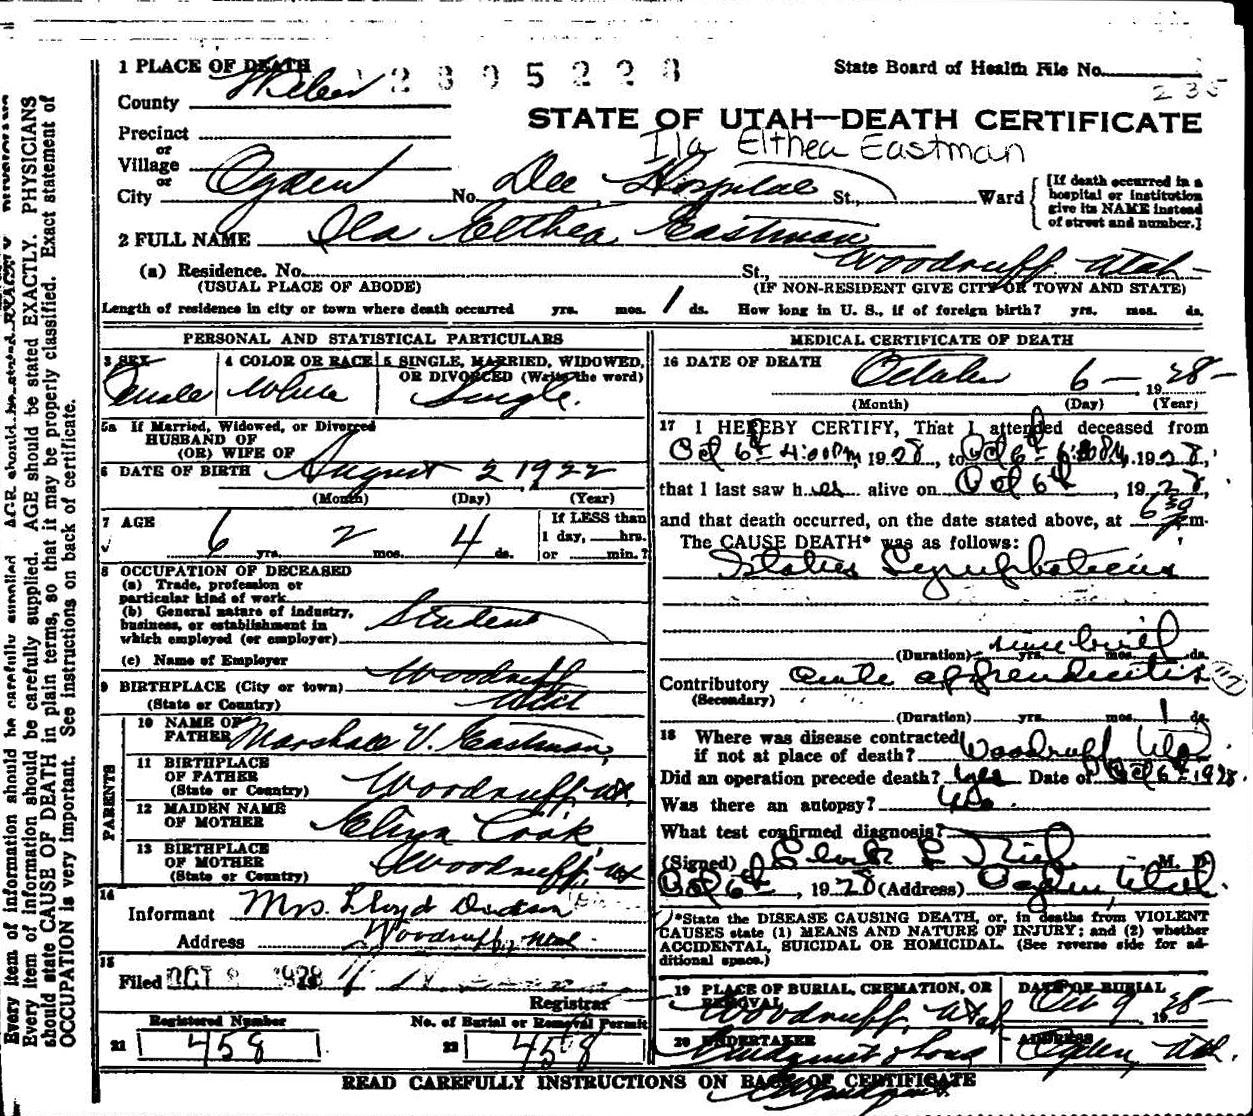 1 PLACE OF DEATH
2 8 0 5 2 2 8
State Board of Health File No.
235
County Weber
STATE OF UTAH—DEATH CERTIFICATE
Precinct
or
Ila Elthea Eastman
Village
or
City Ogden No. Dee Hospital St., Ward
[If death occurred in a hospital or institution give its NAME instead of street and number.]
2 FULL NAME Ila Elthea Eastman
(a) Residence. No. St., Woodruff Utah
(USUAL PLACE OF ABODE) (IF NON-RESIDENT GIVE CITY OR TOWN AND STATE)
Length of residence in city or town where death occurred yrs. mos. 1 ds. How long in U. S., if of foreign birth? yrs. mos. ds.
PERSONAL AND STATISTICAL PARTICULARS
3 SEX Female
4 COLOR OR RACE White
5 SINGLE, MARRIED, WIDOWED, OR DIVORCED (Write the word) Single.
5a If Married, Widowed, or Divorced
HUSBAND OF
(OR) WIFE OF
6 DATE OF BIRTH August 2 1922
(Month) (Day) (Year)
7 AGE 6 yrs. 2 mos. 4 ds.
If LESS than
1 day, hrs.
or min.?
8 OCCUPATION OF DECEASED
(a) Trade, profession or
particular kind of work
(b) General nature of industry,
business, or establishment in
which employed (or employer) Student
(c) Name of Employer
9 BIRTHPLACE (City or town) Woodruff
(State or Country) Utah
PARENTS
10 NAME OF FATHER Marshall V. Eastman
11 BIRTHPLACE OF FATHER (State or Country) Woodruff, Ut.
12 MAIDEN NAME OF MOTHER Eliza Cook
13 BIRTHPLACE OF MOTHER (State or Country) Woodruff, Ut
14 Informant Mrs. Lloyd
Address Woodruff, Utah.
15 Filed OCT 1928
Registrar
Registered Number
21 458
No. of Burial or Removal Permit
22 458
MEDICAL CERTIFICATE OF DEATH
16 DATE OF DEATH October 6 – 1928 –
(Month) (Day) (Year)
17 I HEREBY CERTIFY, That I attended deceased from
Oct 6th 4:00 PM, 1928, to Oct 6th 1928,
that I last saw her alive on Oct 6th, 1928,
and that death occurred, on the date stated above, at 6 30 m.
The CAUSE DEATH* was as follows:
Status Lymphaticus
(Duration) since birth yrs. mos. ds.
Contributory acute appendicitis
(Secondary)
(Duration) yrs. mos. 1 ds.
18 Where was disease contracted
if not at place of death? Woodruff Utah
Did an operation precede death? yes Date of Oct 6th 1928
Was there an autopsy? No.
What test confirmed diagnosis?
(Signed) Clark L Rich M. D.
Oct 6th, 1928 (Address) Ogden Utah.
*State the DISEASE CAUSING DEATH, or, in deaths from VIOLENT
CAUSES state (1) MEANS AND NATURE OF INJURY; and (2) whether
ACCIDENTAL, SUICIDAL OR HOMICIDAL. (See reverse side for ad-
ditional space.)
19 PLACE OF BURIAL, CREMATION, OR REMOVAL Woodruff, Utah
DATE OF BURIAL Oct 9 1928 –
20 UNDERTAKER Lindquist & Sons
ADDRESS Ogden, Utah.
READ CAREFULLY INSTRUCTIONS ON BACK OF CERTIFICATE
Every item of information should be carefully supplied. AGE should be stated EXACTLY. PHYSICIANS
should state CAUSE OF DEATH in plain terms, so that it may be properly classified. Exact statement of
OCCUPATION is very important. See instructions on back of certificate.